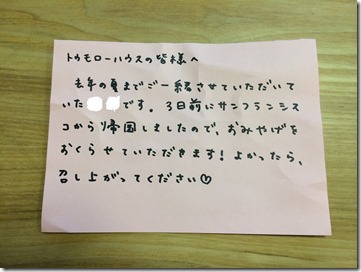 トゥモローハウスの皆様へ
去年の夏までご一緒させていただいて
いた です。3日前にサンフランシス
コから帰国しましたので、おみやげを
おくらせていただきます！よかったら、
召し上がってください♡